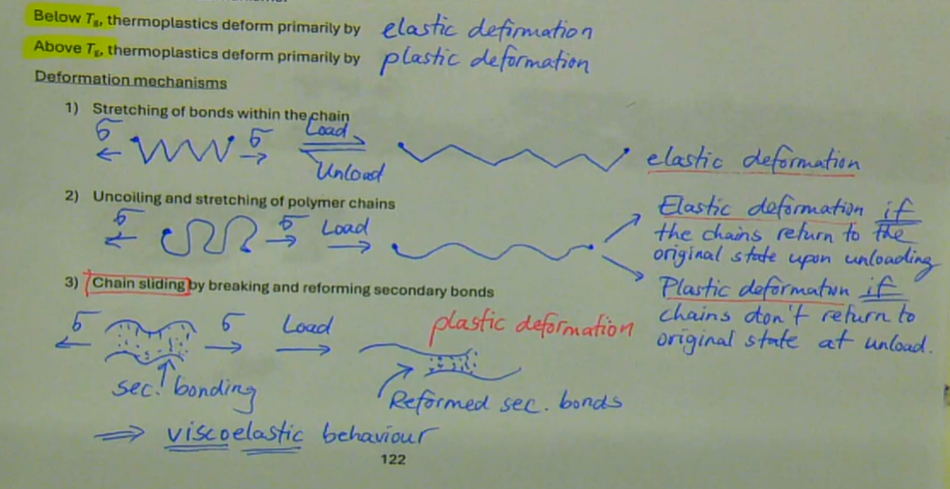 Below Tg, thermoplastics deform primarily by elastic deformation
Above Tg, thermoplastics deform primarily by plastic deformation
Deformation mechanisms
1) Stretching of bonds within the chain
σ σ Load
Unload
elastic deformation
2) Uncoiling and stretching of polymer chains
σ σ Load
Elastic deformation if
the chains return to the
original state upon unloading
Plastic deformation if
chains don't return to
original state at unload.
3) Chain sliding by breaking and reforming secondary bonds
σ σ Load
plastic deformation
sec. bonding
Reformed sec. bonds
⇒ viscoelastic behaviour
122